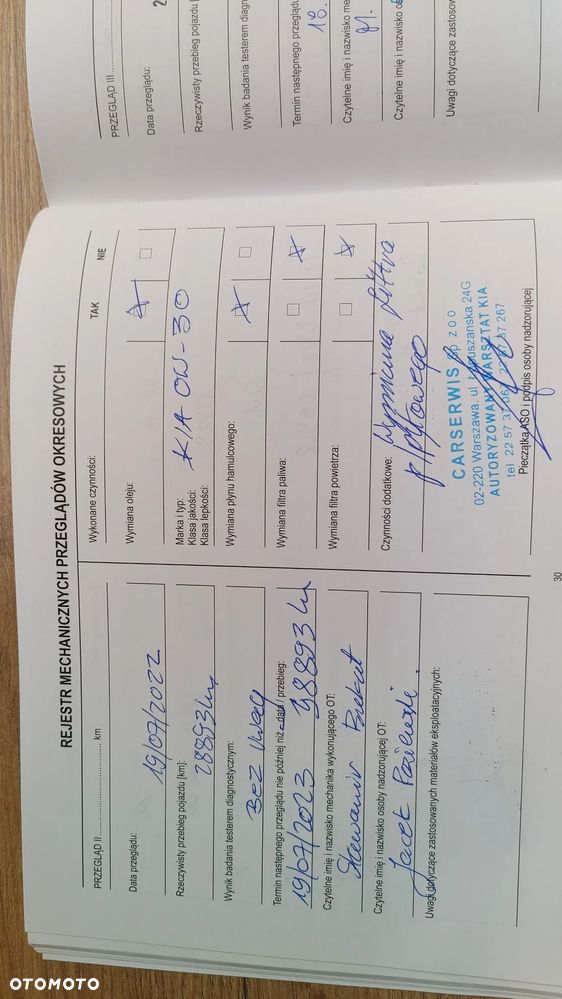 REJESTR MECHANICZNYCH PRZEGLĄDÓW OKRESOWYCH
PRZEGLĄD II .......................... km
Data przeglądu:
19/07/2022
Rzeczywisty przebieg pojazdu [km]:
28893 km
Wynik badania testerem diagnostycznym:
BEZ UWAG
Termin następnego przeglądu nie później niż - data / przebieg:
19/07/2023 38893 km
Czytelne imię i nazwisko mechanika wykonującego OT:
Sławomir
Czytelne imię i nazwisko osoby nadzorującej OT:
Jacek
Uwagi dotyczące zastosowanych materiałów eksploatacyjnych:
Wykonane czynności: TAK NIE
Wymiana oleju:
Marka i typ:
Klasa jakości:
Klasa lepkości:
KIA 0W-30
Wymiana płynu hamulcowego:
Wymiana filtra paliwa:
Wymiana filtra powietrza:
Czynności dodatkowe: Wymiana filtra
p/pyłowego
CARSERWIS sp z o o
02-220 Warszawa, ul. Łopuszańska 24G
AUTORYZOWANY WARSZTAT KIA
tel 22 57 37 267
Pieczątka ASO i podpis osoby nadzorującej
30
PRZEGLĄD III
Data przeglądu: 2
Rzeczywisty przebieg pojazdu
Wynik badania testerem diagn
Termin następnego przeglądu
18.
Czytelne imię i nazwisko me
Czytelne imię i nazwisko os
Uwagi dotyczące zastosow
OTOMOTO